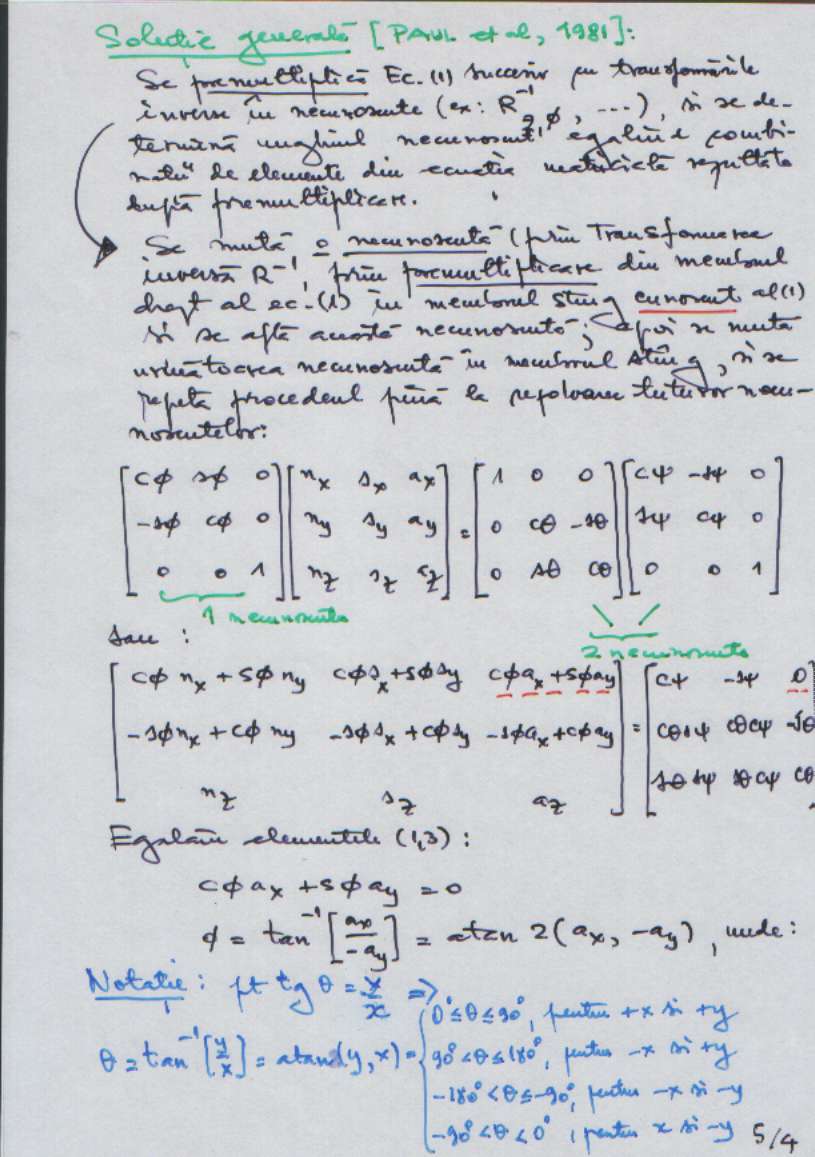 Soluție generală [PAUL et al, 1981]:
Se premultiplică Ec. (1) succesiv cu transformările
inverse în necunoscute (ex: R⁻¹z,φ, ...), și se de-
termină unghiul necunoscut egalînd combi-
nații de elemente din ecuația matricială rezultată
după premultiplicare.
Se mută o necunoscută (prin Transformarea
inversă R⁻¹, prin premultiplicare din membrul
drept al ec. (1) în membrul stîng cunoscut al (1)
și se află această necunoscută; apoi se mută
următoarea necunoscută în membrul stîng, și se
repetă procedeul pînă la rezolvarea tuturor necu-
noscutelor:
[cφ sφ 0] [n_x s_x a_x] = [1 0 0] [cψ -sψ 0]
[-sφ cφ 0] [n_y s_y a_y] = [0 cθ -sθ] [sψ cψ 0]
[0 0 1] [n_z s_z a_z] = [0 sθ cθ] [0 0 1]
1 necunoscută
2 necunoscute
sau:
[cφ n_x + sφ n_y cφ s_x + sφ s_y cφ a_x + sφ a_y] = [cψ -sψ 0]
[-sφ n_x + cφ n_y -sφ s_x + cφ s_y -sφ a_x + cφ a_y] = [cθsψ cθcψ -sθ]
[n_z s_z a_z] = [sθsψ sθcψ cθ]
Egalăm elementele (1,3):
cφ a_x + sφ a_y = 0
φ = tan⁻¹[a_x/-a_y] = atan 2(a_x, -a_y), unde:
Notație: pt tg θ = y/x ⇒
θ = tan⁻¹[y/x] = atan2(y, x) = { 0° ≤ θ ≤ 90°, pentru +x și +y
90° < θ ≤ 180°, pentru -x și +y
-180° < θ ≤ -90°, pentru -x și -y
-90° < θ < 0°, pentru x și -y
5/4